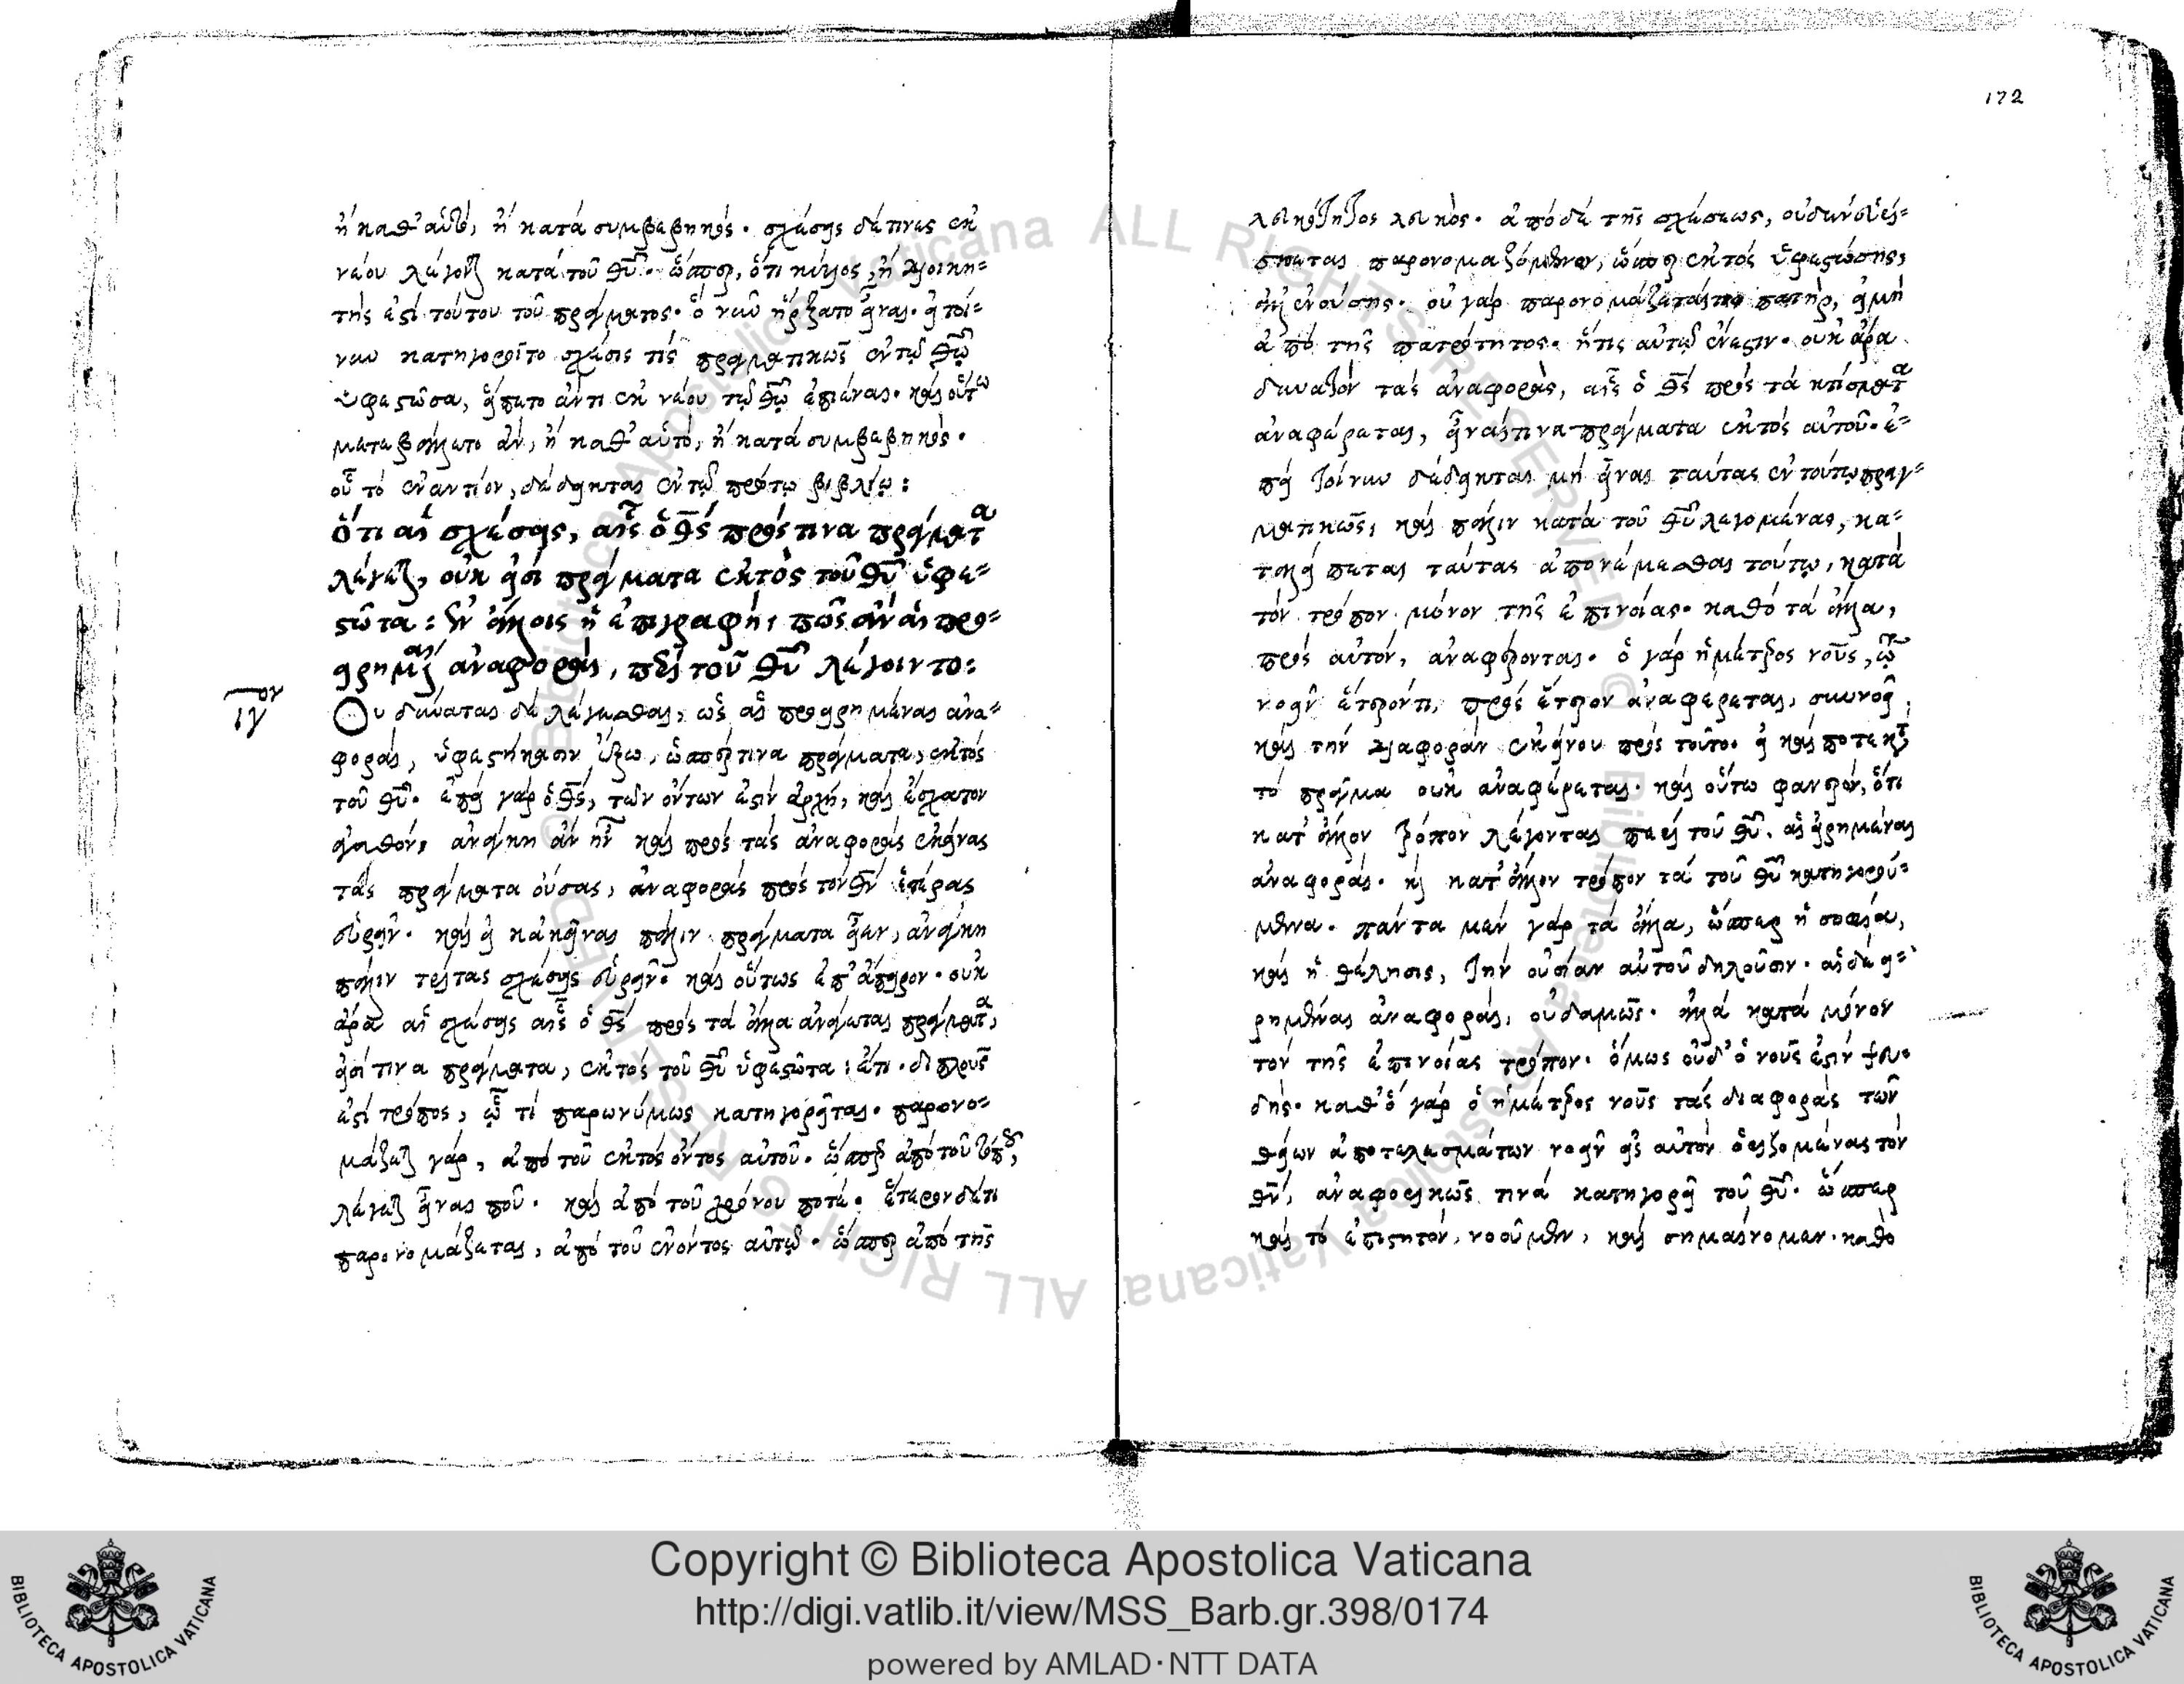 ἢ καθ' αὑτό, ἢ κατὰ συμβεβηκός. σχέσεις δέ τινες ἐκ
νέου λέγονται κατὰ τοῦ θῦ. ὥσπερ, ὅτι κύριος, ἢ διοικη=
τής ἐστι τούτου τοῦ πράγματος. ὃ νῦν ἤρξατο εἶναι. εἰ τοί=
νυν κατηγοροῖτο σχέσις τίς πραγματικῶς ἐν τῷ θῶ
ὑφεστῶσα, ἕποιτο ἄν τι ἐκ νέου τῷ θῶ ἐπιέναι. καὶ οὕτω
μεταβάλλοιτο ἄν, ἢ καθ' αὑτό, ἢ κατὰ συμβεβηκός.
οὗ τὸ ἐναντίον, δέδεικται ἐν τῷ πρώτῳ βιβλίῳ:
ὅτι αἱ σχέσεις, αἷς ὁ θς πρός τινα πράγματα
λέγεται, οὐκ εἰσὶ πράγματα ἐκτὸς τοῦ θῦ ὑφε=
στῶτα: ἐν ἄλλοις ἡ ἐπιγραφή, πῶς ἂν αἱ προ=
ειρημέναι ἀναφοραὶ, περὶ τοῦ θῦ λέγοιντο:
ιγον
Οὐ δύναται δὲ λέγεσθαι, ὡς αἱ προειρημέναι ἀνα=
φοραὶ, ὑφεστήκασιν ἔξω, ὥσπερ τινα πράγματα, ἐκτὸς
τοῦ θῦ. ἐπεὶ γὰρ ὁ θς, τῶν ὄντων ἐστὶν ἀρχή, καὶ ἔσχατον
ἀγαθόν, ἀνάγκη ἂν ἦν καὶ πρὸς τὰς ἀναφορὰς ἐκείνας
τὰς πράγματα οὔσας, ἀναφορὰς πρὸς τὸν θν ἑτέρας
εὑρεῖν. καὶ εἰ κἀκεῖναι πάλιν πράγματα εἶεν, ἀνάγκη
πάλιν τρίτας σχέσεις εὑρεῖν. καὶ οὕτως ἐπ' ἄπειρον. οὐκ
ἄρα αἱ σχέσεις αἷς ὁ θς πρὸς τὰ ἄλλα ἀνάγεται πράγματα,
εἰσί τινα πράγματα, ἐκτὸς τοῦ θῦ ὑφεστῶτα: ἔτι. διπλοῦς
ἐστι τρόπος, ᾧ τι παρωνύμως κατηγορεῖται. παρονο=
μάζεται γὰρ, ἀπὸ τοῦ ἐκτὸς ὄντος αὐτοῦ. ὥσπερ ἀπὸ τοῦ τόπου,
λέγεται εἶναι ποῦ. καὶ ἀπὸ τοῦ χρόνου ποτέ. ἕτερον δέ τι
παρονομάζεται, ἀπὸ τοῦ ἐνόντος αὐτῷ. ὥσπερ ἀπὸ τῆς
172
λευκότητος λευκός. ἀπὸ δὲ τῆς σχέσεως, οὐδὲν εὑρί=
σκεται παρονομαζόμενον, ὥσπερ ἐκτὸς ὑφεστώσης,
ἀλλ' ἐνούσης. οὐ γὰρ παρονομάζεταί τις πατὴρ, εἰ μὴ
ἀπὸ τῆς πατρότητος. ἥτις αὐτῷ ἔνεστιν. οὐκ ἄρα
δυνατὸν τὰς ἀναφορὰς, αἷς ὁ θς πρὸς τὰ κτίσματα
ἀναφέρεται, εἶναί τινα πράγματα ἐκτὸς αὐτοῦ. ἐ=
πεὶ τοίνυν δέδεικται μὴ εἶναι ταύτας ἐν τούτῳ πραγ=
ματικῶς, καὶ πάλιν κατὰ τοῦ θῦ λεγομένας, κα=
ταλείπεται ταύτας ἀπονέμεσθαι τούτῳ, κατὰ
τὸν τρόπον μόνον τῆς ἐπινοίας. καθὸ τὰ ἄλλα,
πρὸς αὐτὸν, ἀναφέρονται. ὁ γὰρ ἡμέτερος νοῦς, ᾧ
νοεῖν ἕτερόν τι, πρὸς ἕτερον ἀναφέρεται, συννοεῖ
καὶ τὴν διαφορὰν ἐκείνου πρὸς τοῦτο. εἰ καί ποτε κατὰ
τὸ πρᾶγμα οὐκ ἀναφέρεται. καὶ οὕτω φανερὸν, ὅτι
κατ' ἄλλον τρόπον λέγονται περὶ τοῦ θῦ. αἱ εἰρημέναι
ἀναφοραὶ. καὶ κατ' ἄλλον τρόπον τὰ τοῦ θῦ κατηγορού=
μενα. πάντα μὲν γὰρ τὰ ἄλλα, ὥσπερ ἡ σοφία,
καὶ ἡ θέλησις, τὴν οὐσίαν αὐτοῦ δηλοῦσιν. αἱ δὲ εἰ=
ρημέναι ἀναφοραὶ, οὐδαμῶς. ἀλλὰ κατὰ μόνον
τὸν τῆς ἐπινοίας τρόπον. ὅμως οὐδ' ὁ νοῦς ἐστὶν ψευ=
δής. καθ' ὃ γὰρ ὁ ἡμέτερος νοῦς τὰς διαφορὰς τῶν
θείων ἀποτελεσμάτων νοεῖν εἰς αὐτὸν ὁριζομένας τὸν
θν, ἀναφορικῶς τινὰ κατηγορεῖ τοῦ θῦ. ὥσπερ
καὶ τὸ ἐπιστητὸν, νοοῦμεν, καὶ σημαίνομεν. καθὸ
Copyright © Biblioteca Apostolica Vaticana
http://digi.vatlib.it/view/MSS_Barb.gr.398/0174
powered by AMLAD·NTT DATA
BIBLIOTECA APOSTOLICA VATICANA
BIBLIOTECA APOSTOLICA VATICANA